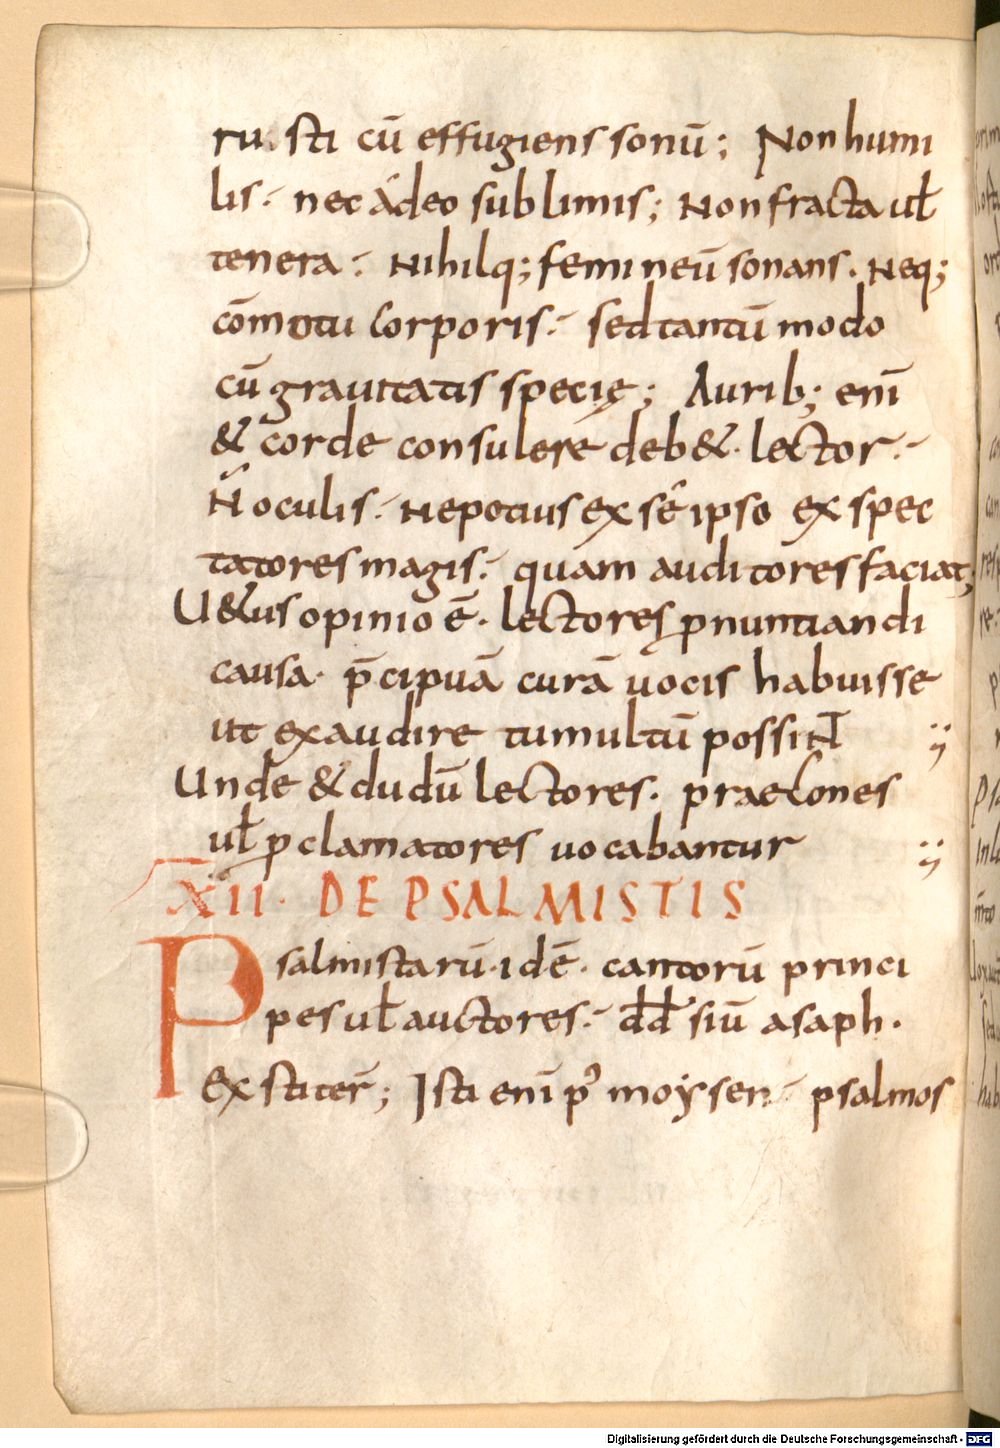 ru.sti cū effugiens sonū; Non humi
lis. nec ádeo sublimis; Non fracta uł
tenera. Nihilq; femineū sonans. Neq;
cōmotu corporis. sed tantū modo
cū grauitatis specię; Aurib; enī
& corde consulere deb&. lector.
N̄ oculis. Ne potius ex sē ipso exspec
tatores magis. quam auditores faciat;
U&us opinio ē. lectores ꝓnuntiandi
causa. p̄cipuā curā uocis habuisse
ut exaudire tumultū possiNT
Unde & dudū lectores. praecones
uł ꝓclamatores uocabantur
XII. DE PSALMISTIS
Psalmistarū. idē. cantorū princi
pes uł auctores. dd̄ siū asaph.
Exstiter̄; Isti enī p᾿ moẏsen psalmos
Digitalisierung gefördert durch die Deutsche Forschungsgemeinschaft - DFG